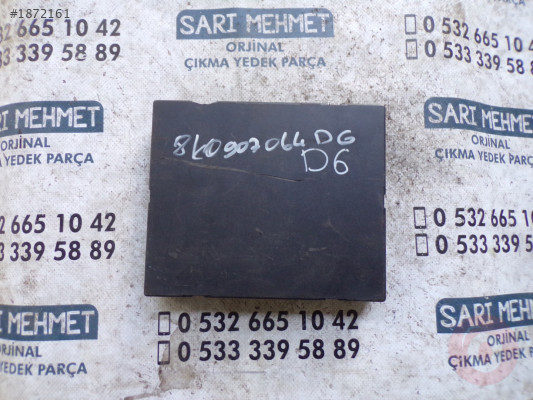 #1872161
SARI MEHMET
ORJİNAL
ÇIKMA YEDEK PARÇA
0 532 665 10 42
0 533 339 58 89
665 10 42
33 339 58 89
SARI MEHMET
ORJİNAL
ÇIKMA YEDEK PARÇA
8K0907064DG
D6
MEHMET
ORJİNAL
YEDEK PARÇA
32 665 10 42
33 339 58 89
0 532 665
0 533 339
SARI MEHMET
ORJİNAL
ÇIKMA YEDEK PARÇA
0 532 665 10 42
0 533 339 58 89
MEHMET
ORJİNAL
YEDEK PARÇA